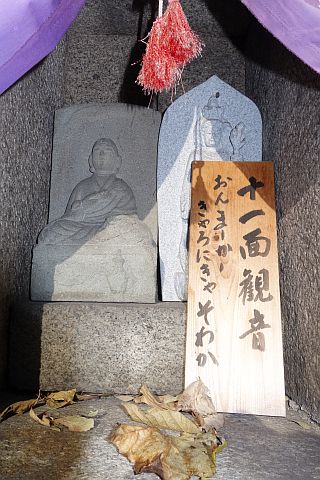 十一面観音
おん まかー
きゃろにきゃ そわか